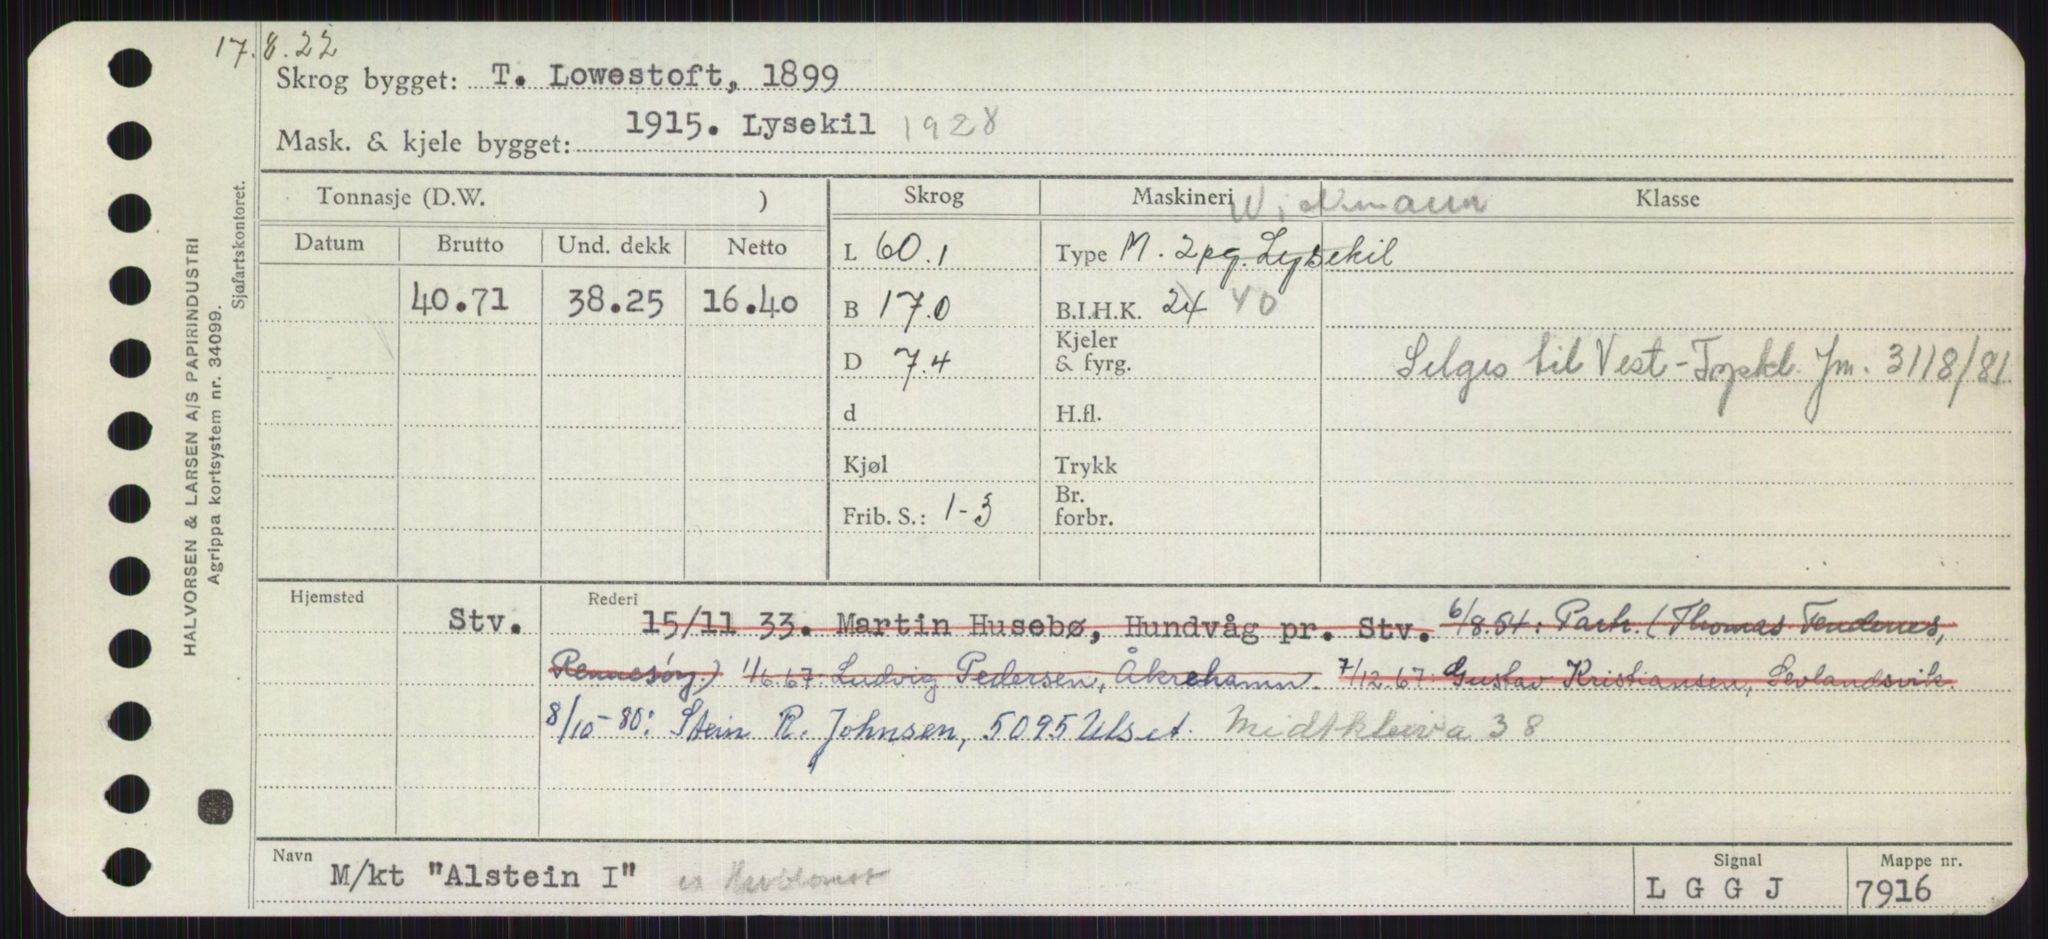 17.8.22
Skrog bygget: T. Lowestoft, 1899
Mask. & kjele bygget: 1915. Lysekil 1928
Tonnasje (D.W. ) Skrog Maskineri Wickmann Klasse
Datum Brutto Und. dekk Netto L 60.1 Type M. 2pg. Lysekil
40.71 38.25 16.40 B 17.0 B.I.H.K. 24 40
D 7.4 Kjeler & fyrg. Selges til Vest-Torskl. Jm. 3118/81
d H.fl.
Kjøl Trykk
Frib. S.: 1-3 Br. forbr.
Hjemsted Rederi
Stv. 15/11 33. Martin Husebø, Hundvåg pr. Stv. 6/8.54: Parh. (Thomas Tendenes,
Rennesøy.) 1/6.67: Ludvig Pedersen, Åkrehamn. 7/12.67: Gustav Kristiansen, Sevlandsvik.
8/10-80: Stein R. Johnsen, 5095 Ulset. Midtkleiva 38
Navn Signal Mappe nr.
M/kt "Alstein I" ex LGGJ 7916
HALVORSEN & LARSEN A/S PAPIRINDUSTRI
Agrippa kortsystem nr. 34099.
Sjøfartskontoret.